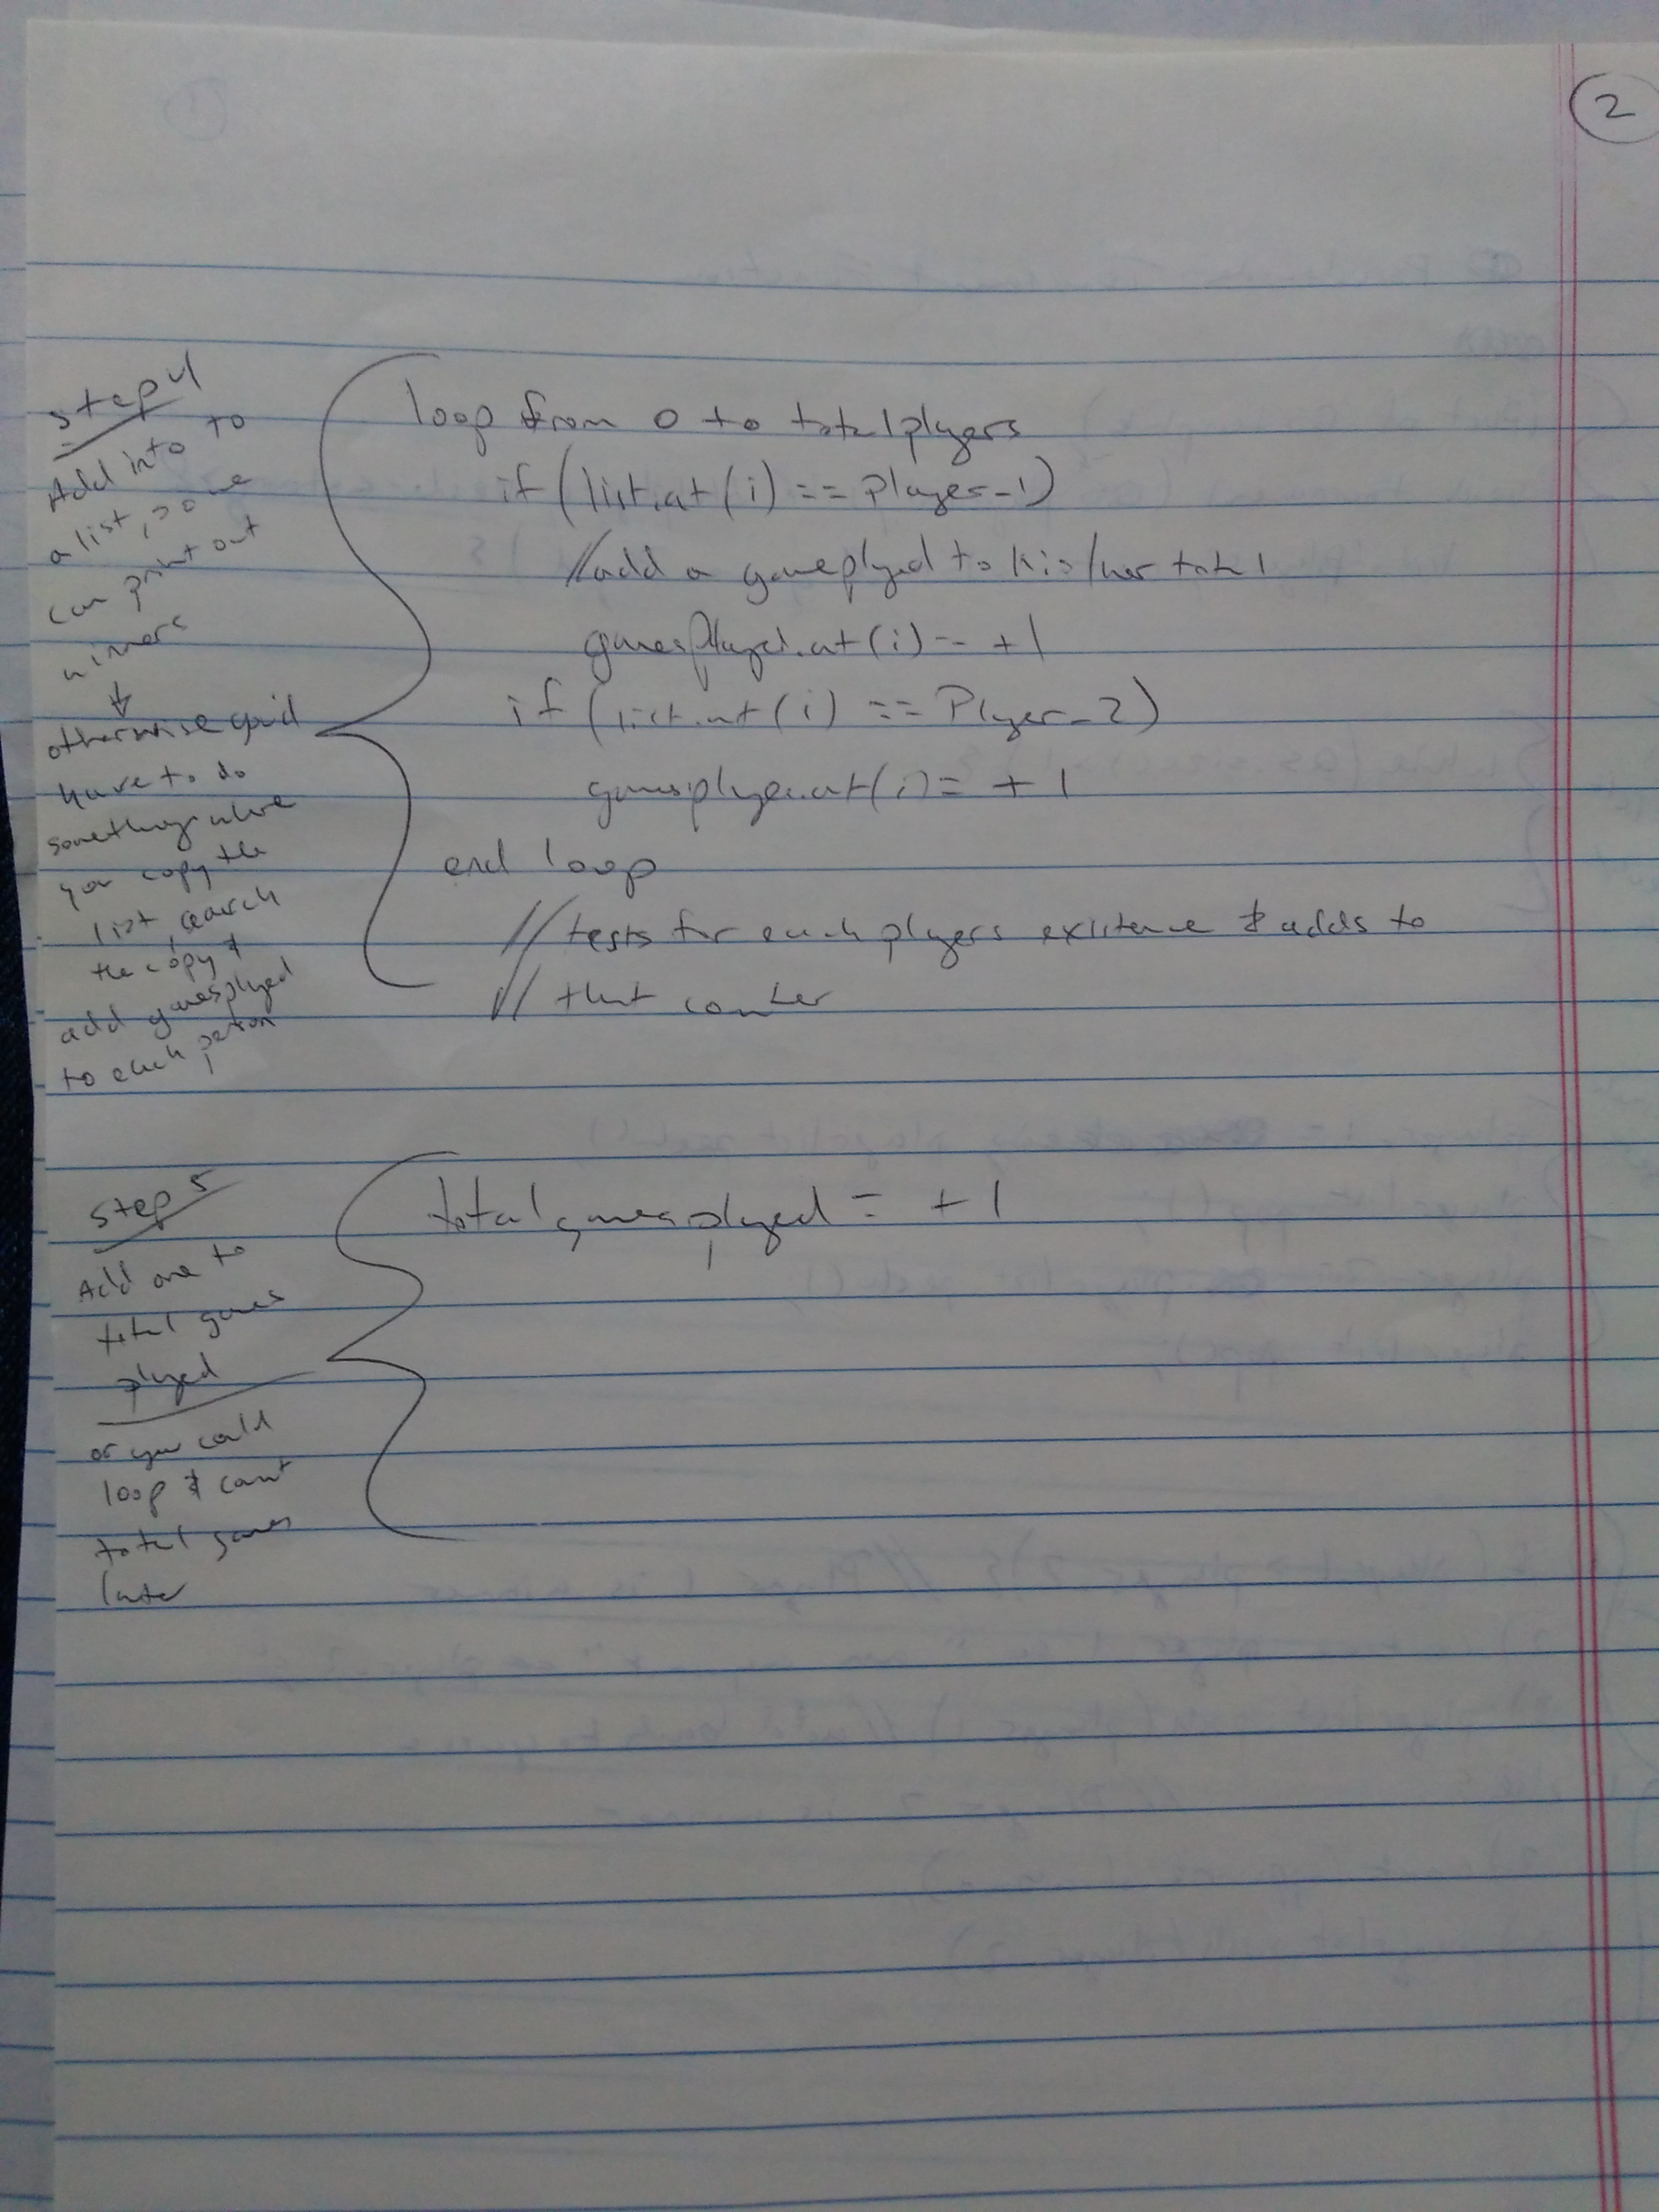 2
step 4
Add into to
a list, so we
can print out
winners
↓
otherwise you'd
have to do
something where
you copy the
list, search
the copy &
add gamesplayed
to each person
loop from 0 to totalplayers
if (list.at(i) == Player_1)
//add a gameplayed to his/her total
gamesPlayed.at(i) = +1
if (list.at(i) == Player_2)
gamesplayed.at(i) = +1
end loop
// tests for each players existence & adds to
// that counter
step 5
Add one to
total games
played
or you could
loop & count
total games
later
totalgamesplayed = +1